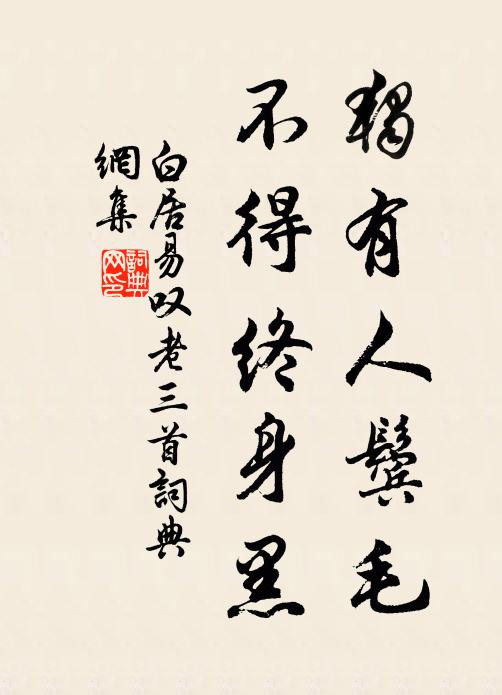 獨有人鬢毛
不得終身黑
白居易叹老三首詞典
網集
詞典
网印